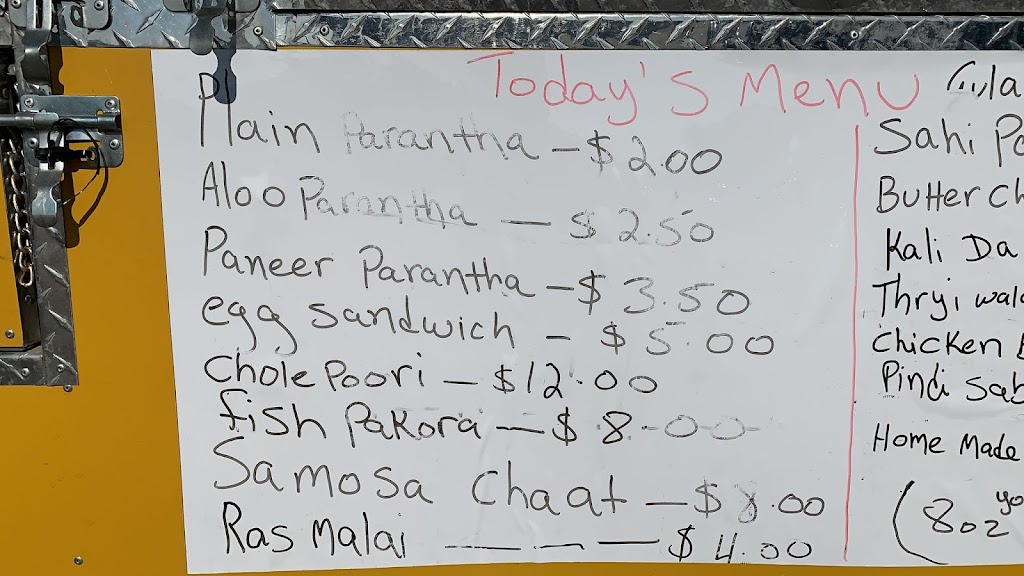 Today's Menu
Plain Parantha - $2.00
Aloo Parantha - $2.50
Paneer Parantha - $3.50
egg sandwich - $5.00
Chole Poori - $12.00
fish Pakora - $8.00
Samosa Chaat - $8.00
Ras Malai - - - $4.00
Sahi
Butter
Kali
Thryi
chicken
Pindi
Home Made
(8oz